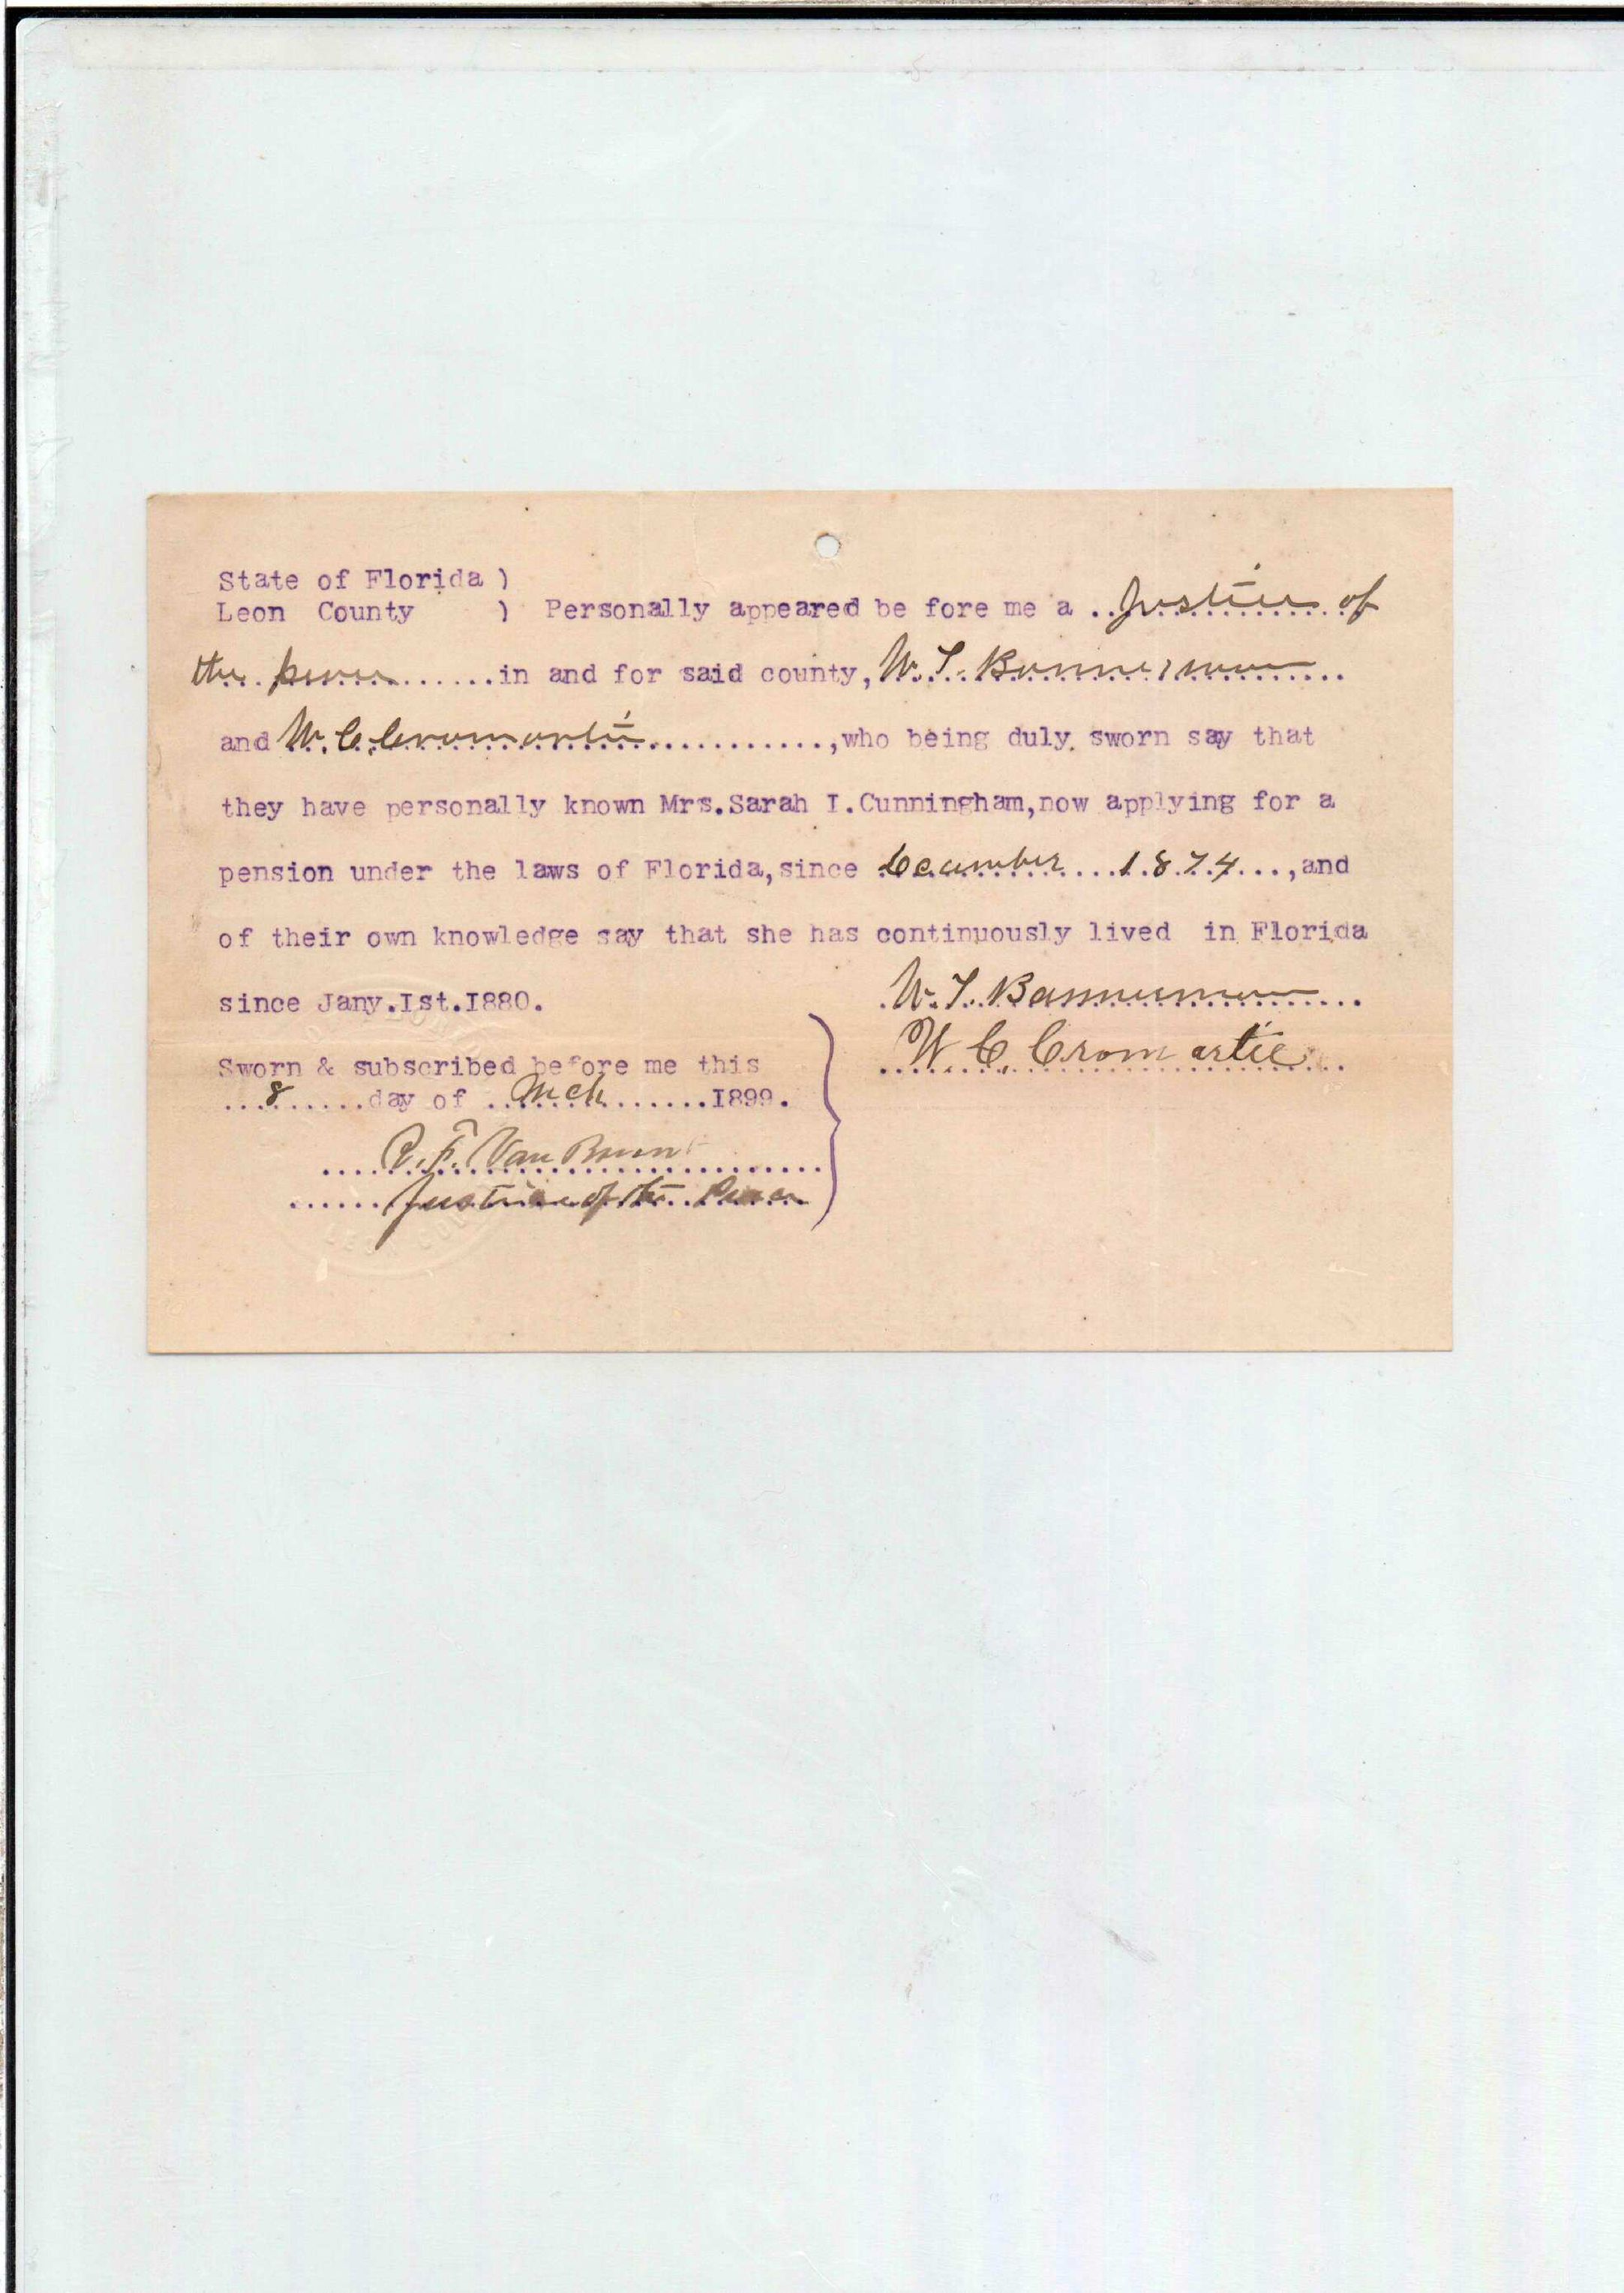 State of Florida )
Leon County ) Personally appeared be fore me a ..Justice of
the peace.......in and for said county, W. T. Bannerman..
and W. C. Cromartie............,who being duly sworn say that
they have personally known Mrs.Sarah I.Cunningham,now applying for a
pension under the laws of Florida,since December ...1.8.74...,and
of their own knowledge say that she has continuously lived in Florida
since Jany.Ist.I880.
W. T. Bannerman...
W C Cromartie..
Sworn & subscribed before me this
...8......day of ..Mch.......I899.
R. F. Van Brunt
Justice of the Peace